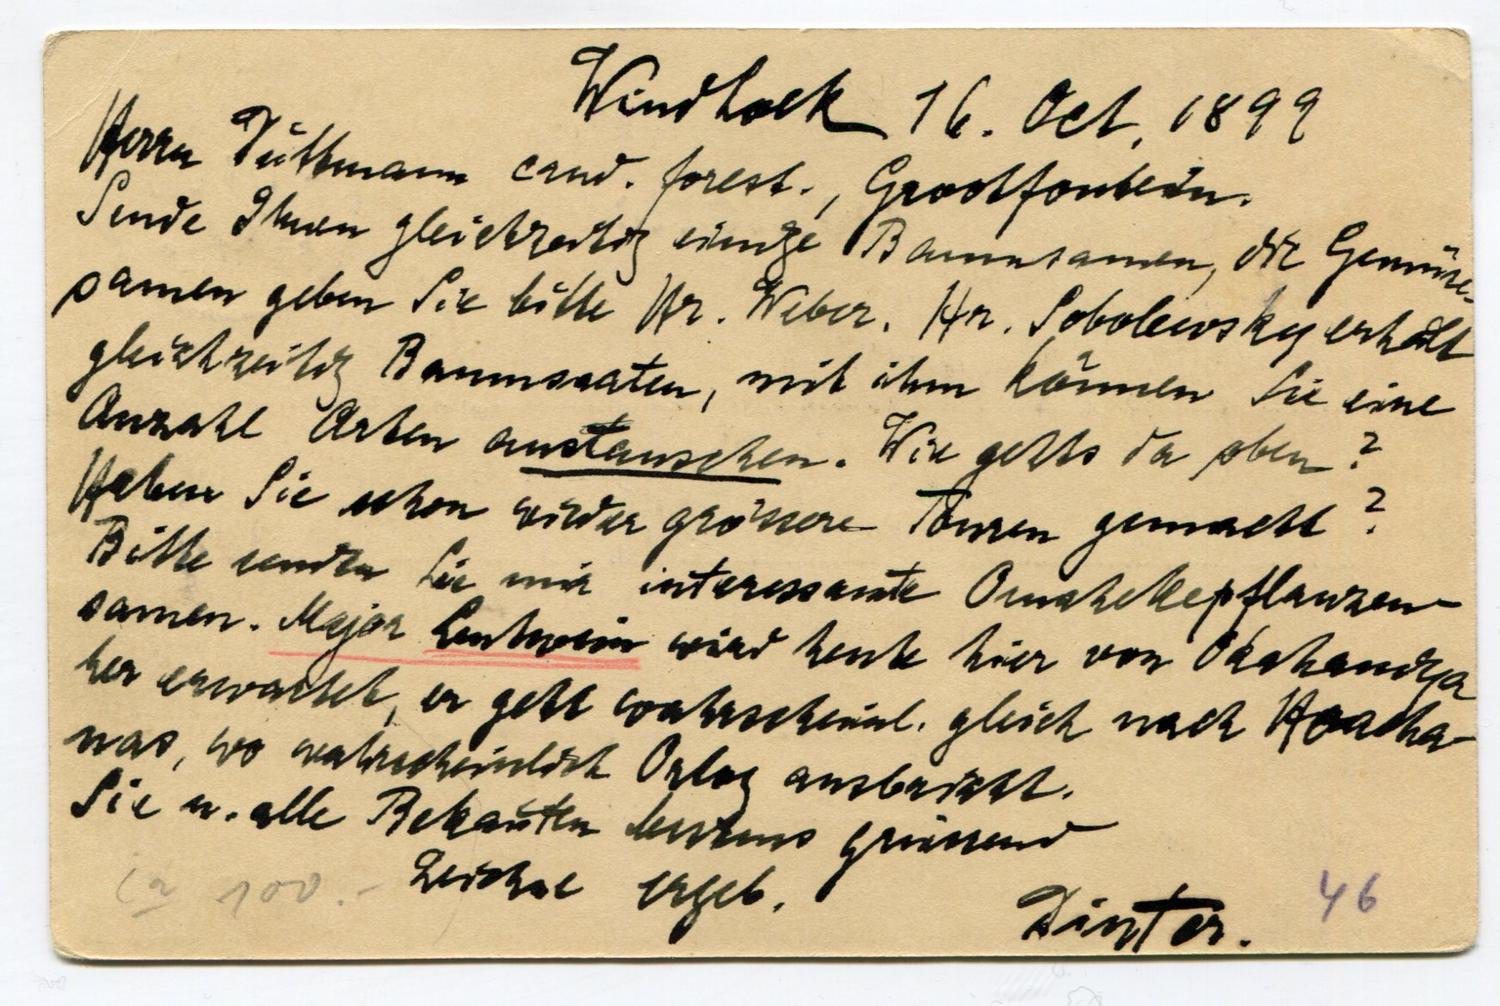 Windhoek 16. Oct. 1899
Herrn Tüttmann cand. forest., Grootfontein.
Sende Ihnen gleichzeitig einige Baumsamen, die Gemüse-
samen geben Sie bitte Hr. Weber. Hr. Sobolewsky erhält
gleichzeitig Baumsaaten, mit ihm können Sie eine
Anzahl Arten austauschen. Wie gehts da oben?
Haben Sie schon wieder grössere Touren gemacht?
Bitte senden Sie mir interessante Omahekepflanzen-
samen. Major Leutwein wird heute hier von Okahandya
her erwartet, er geht wahrscheinl. gleich nach Hoacha-
nas, wo wahrscheinlich Orlog ausbricht.
Sie u. alle Bekañten bestens grüssend
Zeichne ergeb.
Dinter.
ca 100.-
46